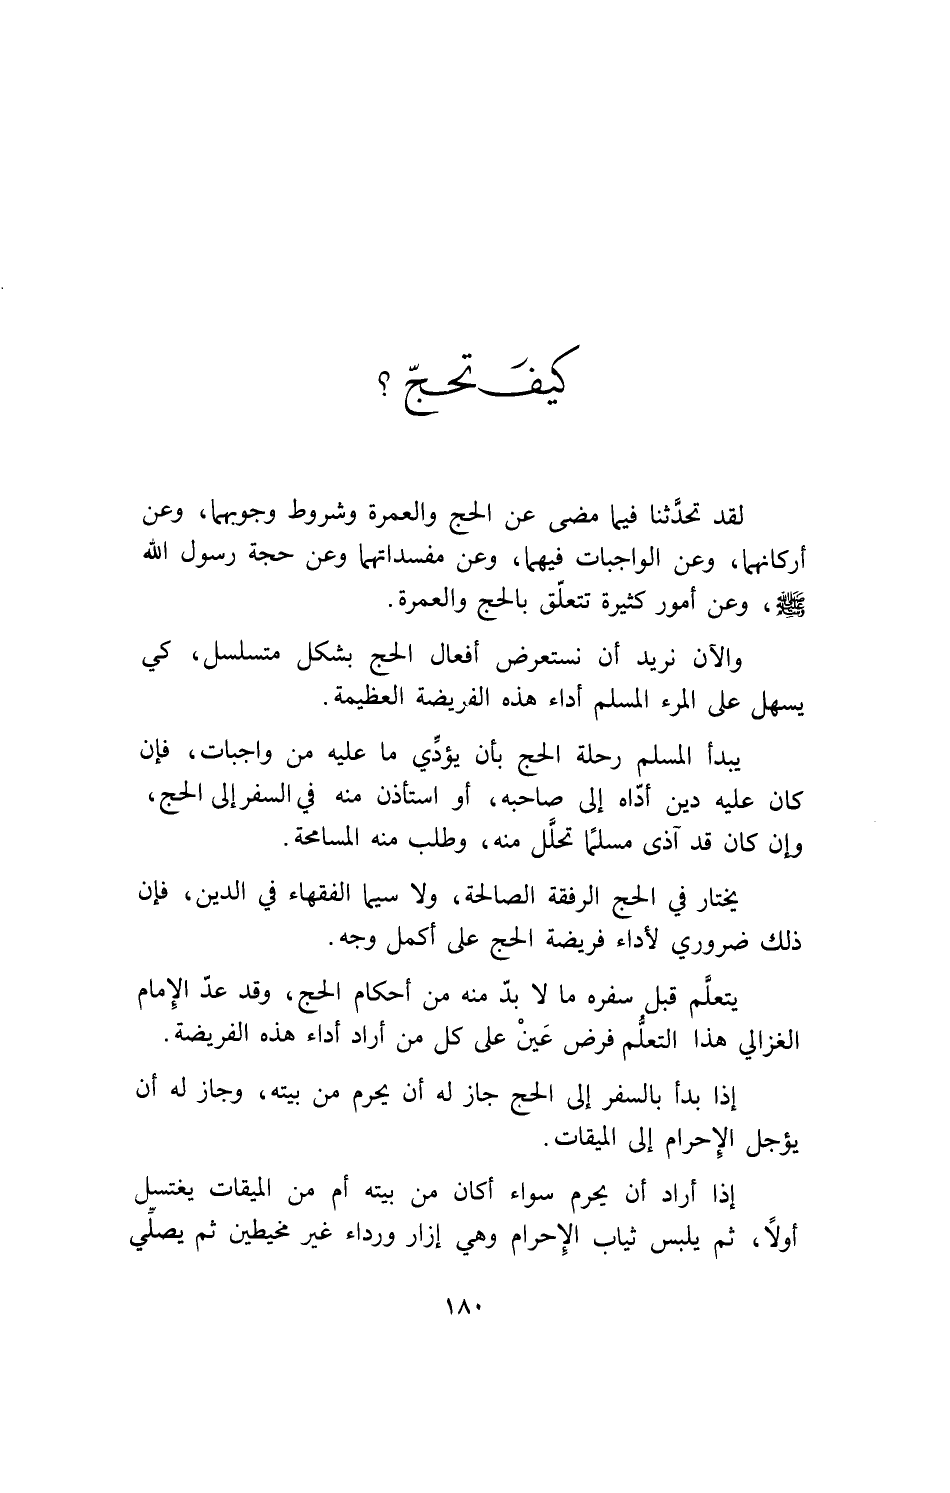 كيفَ تحجّ ؟
لقد تحدَّثنا فيما مضى عن الحج والعمرة وشروط وجوبهما، وعن
أركانهما، وعن الواجبات فيهما، وعن مفسداتهما وعن حجة رسول الله
ﷺ، وعن أمور كثيرة تتعلّق بالحج والعمرة.
والآن نريد أن نستعرض أفعال الحج بشكل متسلسل، كي
يسهل على المرء المسلم أداء هذه الفريضة العظيمة.
يبدأ المسلم رحلة الحج بأن يؤدِّي ما عليه من واجبات، فإن
كان عليه دين أدّاه إلى صاحبه، أو استأذن منه في السفر إلى الحج،
وإن كان قد آذى مسلمًا تحلَّل منه، وطلب منه المسامحة.
يختار في الحج الرفقة الصالحة، ولا سيما الفقهاء في الدين، فإن
ذلك ضروري لأداء فريضة الحج على أكمل وجه.
يتعلَّم قبل سفره ما لا بدّ منه من أحكام الحج، وقد عدّ الإمام
الغزالي هذا التعلُّم فرض عَينْ على كل من أراد أداء هذه الفريضة.
إذا بدأ بالسفر إلى الحج جاز له أن يحرم من بيته، وجاز له أن
يؤجل الإحرام إلى الميقات.
إذا أراد أن يحرم سواء أكان من بيته أم من الميقات يغتسل
أولًا، ثم يلبس ثياب الإحرام وهي إزار ورداء غير مخيطين ثم يصلِّي
١٨٠